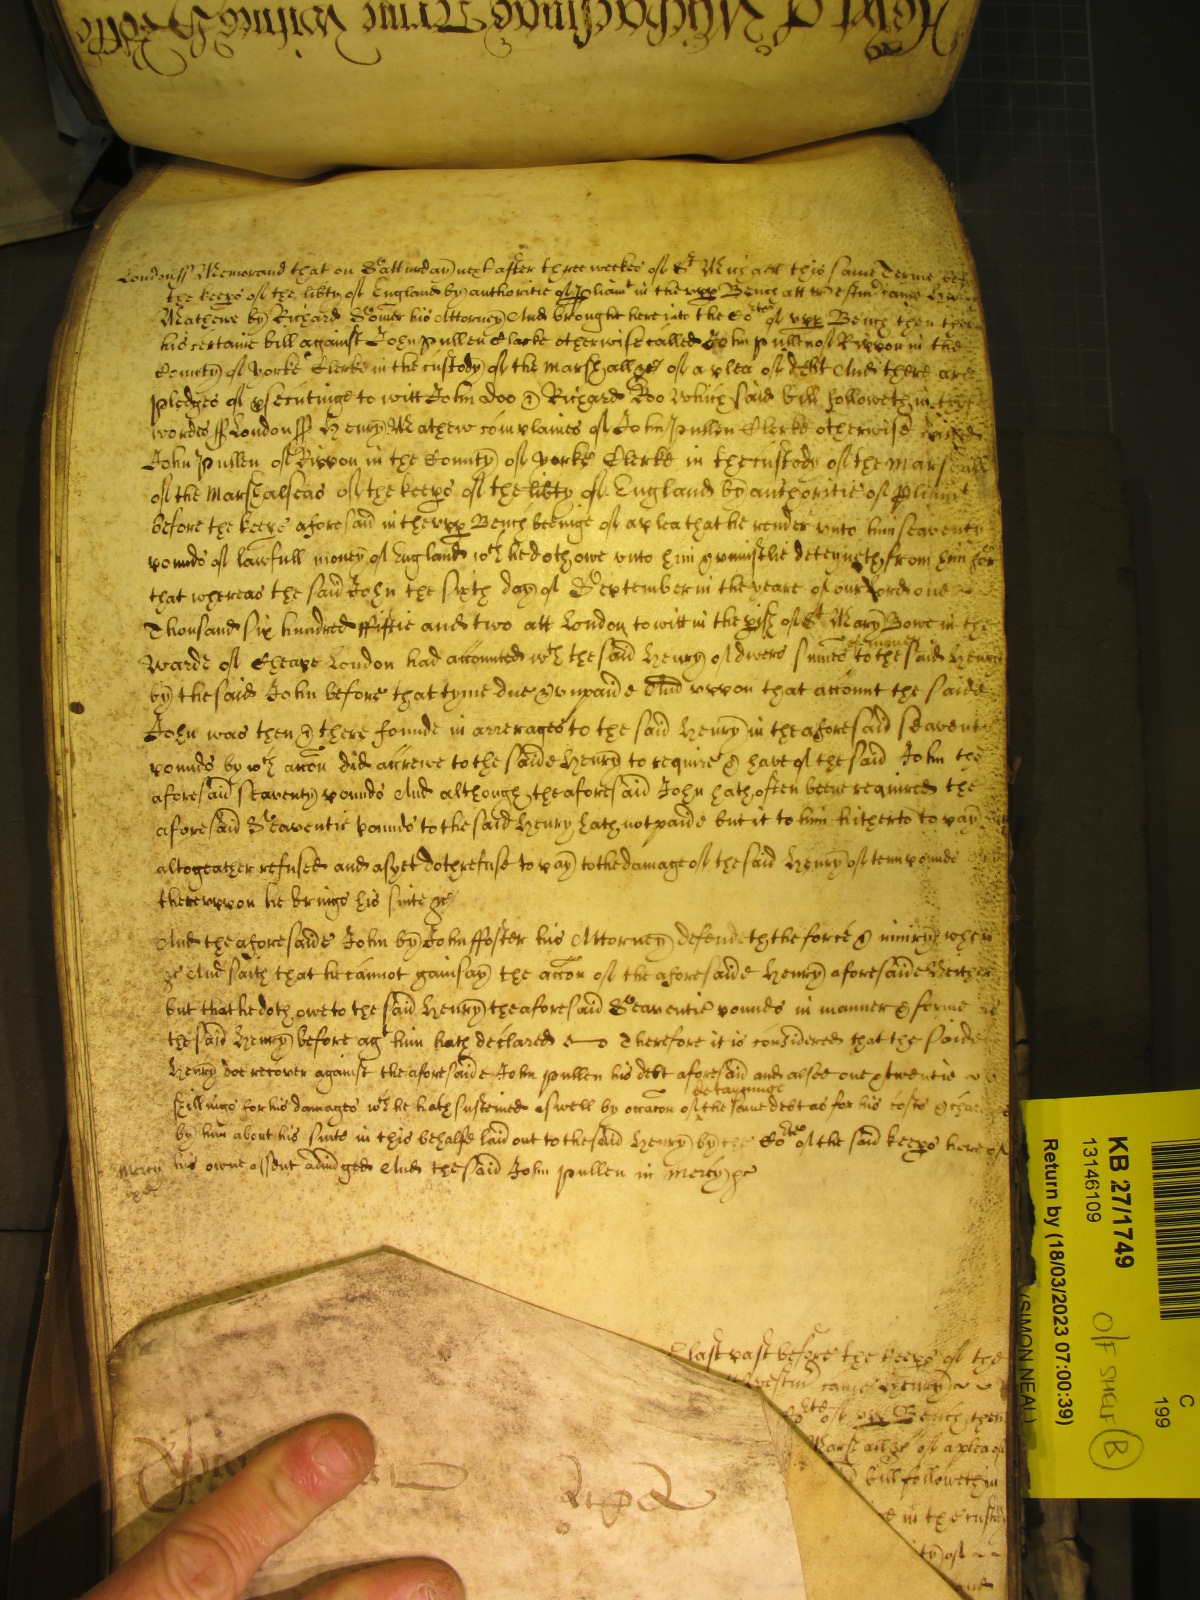 Rest of Michaelmas Terme Witnes Rolle
London ss Memorand that on Satturday next after three weekes of St Michaell this same Terme before
the keeps of the libty of England by authoritie of pliamt in the vpp Bench att Westm came Henry
Mathewe by Richard Somer his Attorney And brought here into the Cort of vpp Bench then there
his certaine bill against John Pullen Clarke otherwise called John Pullen of Rippon in the
County of Yorke Clerke in the custody of the Marshall &c of a plea of debt And there are
pledges of psecutinge to witt John Doo & Richard Roo Which said bill followeth in these
wordes ss London ss Henry Mathew complaines of John Pullen Clerke otherwise called
John Pullen of Rippon in the County of Yorke Clerke in the custody of the Marshall
of the Marshalseas of the keeps of the libty of England by authoritie of pliamt
before the keeps aforesaid in the vpp Bench beeinge of a plea that he render vnto him seaventy
pounds of lawfull money of England wch he doth owe vnto him & vniustlie deteyneth from him for
that whereas the said John the sixth day of September in the yeare of our Lord one
Thousand six hundred fiftie and two att London to witt in the pish of St Mary Bowe in the
Warde of Cheape London had accounted wth the said Henry of divers summes of money to the said Henry
by the said John before that tyme due & vnpaide And vppon that account the saide
John was then & there founde in arrerages to the said Henry in the aforesaid seaventie
pounds by wch accon did accrewe to the saide Henry to require & have of the said John the
aforesaid seaventy pounds And although the aforesaid John hath often beene required the
aforesaid Seaventie pounds to the said Henry hath not paide but it to him hitherto to pay
altogeather refused and as yet doth refuse to pay to the damage of the said Henry of tenn pounds
therevppon he brings his suite &c
And the aforesaide John by John ffoster his Attorney defendeth the force & iniury when
&c And saith that he cannot gainsay the accon of the aforesaide Henry aforesaide Neither
but that he doth owe to the said Henry the aforesaid Seaventie pounds in manner & forme as
the said Henry before agt him hath declared Therefore it is considered that the saide
Henry doe recover against the aforesaide John Pullen his debt aforesaid and alsoe one & twentie
shillings for his damages wch he hath susteined aswell by occacon of the detayninge same debt as for his costs & charges
by him about his suite in this behalfe laid out to the said Henry by the Cort of the said keeps here of
Mercy
his owne assent adiudged And the said John Pullen in mercy &c
last past before the keeps of the
Westm came Henry
Cort of vpp Bench then
Marshall &c of a plea of
bill followeth in
in the custody
ty of
and
KB 27/1749
13146109
Return by (18/03/2023 07:00:39)
(SIMON NEAL)
C
199
O/F SHELF B